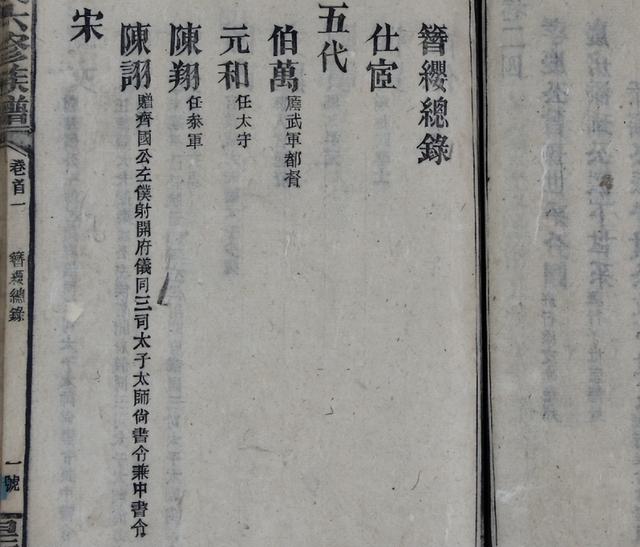 簪纓總錄
仕宦
五代
伯萬 應武軍都督
元和 任太守
陳翔 任叅軍
陳詡 贈齊國公左僕射開府儀同三司太子太師尙書令兼中書令
宋
六修族譜
卷首一
簪纓總錄
一號